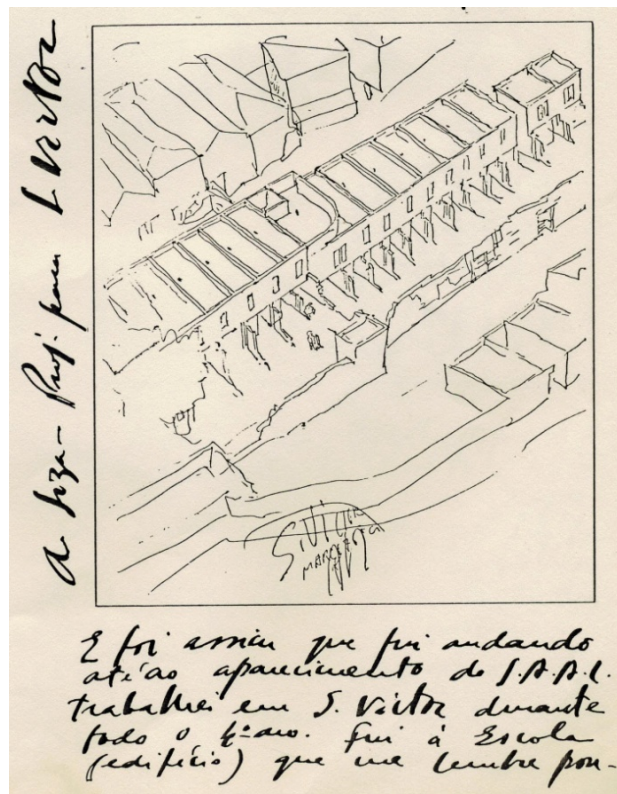 A Siza – Proj. para S. Victor
S. Victor
MARÇO
E foi assim que fui andando
até ao aparecimento do S.A.A.L.
trabalhei em S. Victor durante
todo o 4º ano. Fui à Escola
(edifício) que me lembre pou-